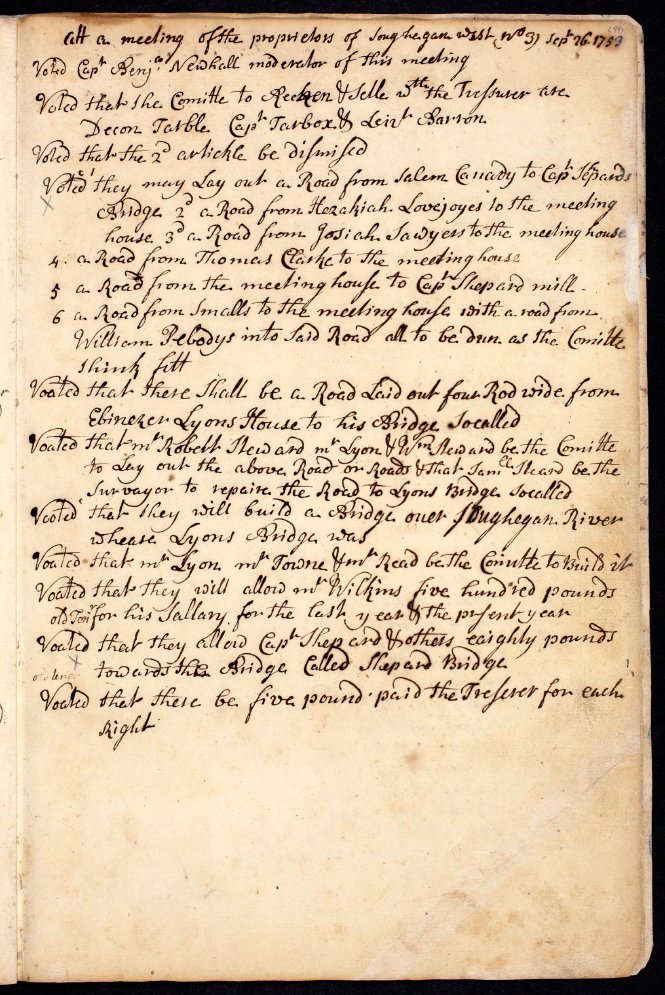 att a meeting of the proprietors of Soughegan west (No 3) Sept 26 1753
Voted Capt Benja Newhall moderator of this meeting
Voted that the Comitte to Recken & Selle wth the Tresurer are
Decon Tarble Capt Tarbox & Leiut Barron
Voted that the 2d artickle be dismised
Voted they may Lay out a Road from Salem Canady to Capt Shpards
Bridge 2d a Road from Hezakiah Lovejoyes to the meeting
house 3d a Road from Josiah Sawyers to the meeting house
4. a Road from Thomas Clarke to the meeting house
5 a Road from the meeting house to Capt Shepard mill
6 a Road from Smalls to the meeting house with a road from
William Pebodys into Said Road all to be dun as the Comitte
think fitt
Voated that there Shall be a Road Laid out four Rod wide from
Ebinezer Lyons House to his Bridge Socalled
Voated that mr Robert Steward mr Lyon & Wm Steward be the Comitte
to Lay out the above Road or Roads & that Samll Steard be the
Surveyor to repaire the Road to Lyons Bridge Socalled
Voated that they will build a Bridge over Soughegan River
whease Lyons Bridge was
Voated that mr Lyon mr Towne & mr Read be the Comitte to Build it
Voated that they will allow mr Wilkins five hundred pounds
old Tenr for his Sallary for the last year & the prsent year
Voated that they allow Capt Shepard & others eaighly pounds
old tenor towards the Bridge Called Shepard Bridge
Voated that there be five pound paid the Treserer for each
Right